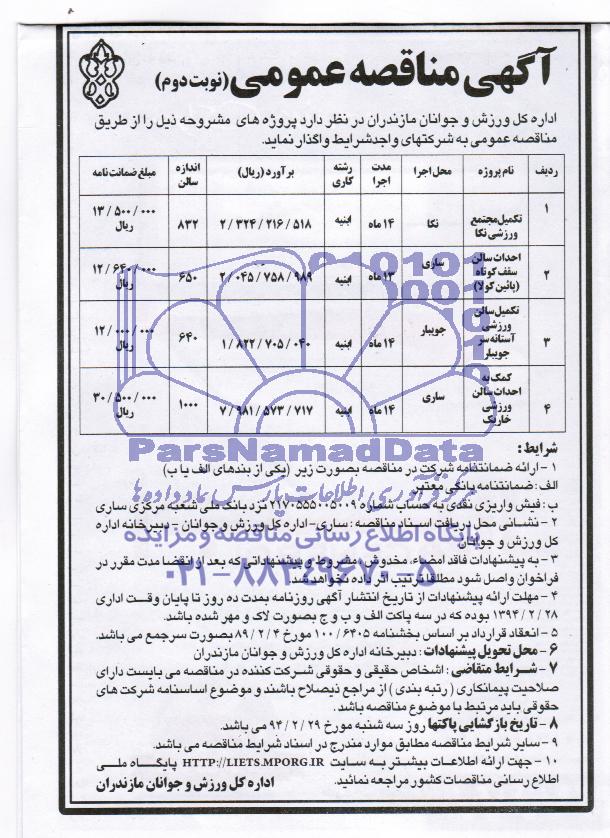 آگهی مناقصه عمومی (نوبت دوم)
اداره کل ورزش و جوانان مازندران در نظر دارد پروژه های مشروحه ذیل را از طریق
مناقصه عمومی به شرکتهای واجدشرایط واگذار نماید.
ردیف نام پروژه محل اجرا مدت اجرا رشته کاری برآورد (ریال) اندازه سالن مبلغ ضمانت نامه
۱ تکمیل مجتمع ورزشی نکا نکا ۱۴ ماه ابنیه ۲/۳۲۴/۲۱۶/۵۱۸ ۸۳۲ ۱۳/۵۰۰/۰۰۰ ریال
۲ احداث سالن سقف کوتاه (پائین کولا) ساری ۱۳ ماه ابنیه ۲/۰۴۵/۷۵۸/۹۸۹ ۶۵۰ ۱۲/۶۴۰/۰۰۰ ریال
۳ تکمیل سالن ورزشی آستانه سر جویبار جویبار ۱۴ ماه ابنیه ۱/۸۲۲/۷۰۵/۰۴۰ ۶۴۰ ۱۲/۰۰۰/۰۰۰ ریال
۴ کمک به احداث سالن ورزشی خاریک ساری ۱۴ ماه ابنیه ۷/۹۸۱/۵۷۳/۷۱۷ ۱۰۰۰ ۳۰/۵۰۰/۰۰۰ ریال
ParsNamadData
شرایط:
۱- ارائه ضمانتنامه شرکت در مناقصه بصورت زیر (یکی از بندهای الف یا ب)
الف: ضمانتنامه بانکی معتبر
مرکز فرآوری اطلاعات پارس نماد داده ها
ب: فیش واریزی نقدی به حساب شماره ۲۱۷۰۵۵۵۰۰۵۰۰۹ نزد بانک ملی شعبه مرکزی ساری
۲- نشانی محل دریافت اسناد مناقصه: ساری- اداره کل ورزش و جوانان - دبیرخانه اداره
کل ورزش و جوانان
پایگاه اطلاع رسانی مناقصه و مزایده
۳- به پیشنهادات فاقد امضاء، مخدوش، مشروط و پیشنهاداتی که بعد از انقضا مدت مقرر در
فراخوان واصل شود مطلقا ترتیب اثر داده نخواهد شد.
۰۲۱-۸۸۳۴۹۶۷۰-۵
۴- مهلت ارائه پیشنهادات از تاریخ انتشار آگهی روزنامه بمدت ده روز تا پایان وقت اداری
۱۳۹۴/۲/۲۸ بوده که در سه پاکت الف و ب و ج بصورت لاک و مهر شده باشد.
۵- انعقاد قرارداد بر اساس بخشنامه ۱۰۰/۶۴۰۵ مورخ ۸۹/۲/۴ بصورت سرجمع می باشد.
۶- محل تحویل پیشنهادات: دبیرخانه اداره کل ورزش و جوانان مازندران
۷- شرایط متقاضی: اشخاص حقیقی و حقوقی شرکت کننده در مناقصه می بایست دارای
صلاحیت پیمانکاری (رتبه بندی) از مراجع ذیصلاح باشند و موضوع اساسنامه شرکت های
حقوقی باید مرتبط با موضوع مناقصه باشد.
۸- تاریخ بازگشایی پاکتها روز سه شنبه مورخ ۹۴/۲/۲۹ می باشد.
۹- سایر شرایط مناقصه مطابق موارد مندرج در اسناد شرایط مناقصه می باشد.
۱۰- جهت ارائه اطلاعات بیشتر به سایت HTTP://LIETS.MPORG.IR پایگاه ملی
اطلاع رسانی مناقصات کشور مراجعه نمائید.
اداره کل ورزش و جوانان مازندران